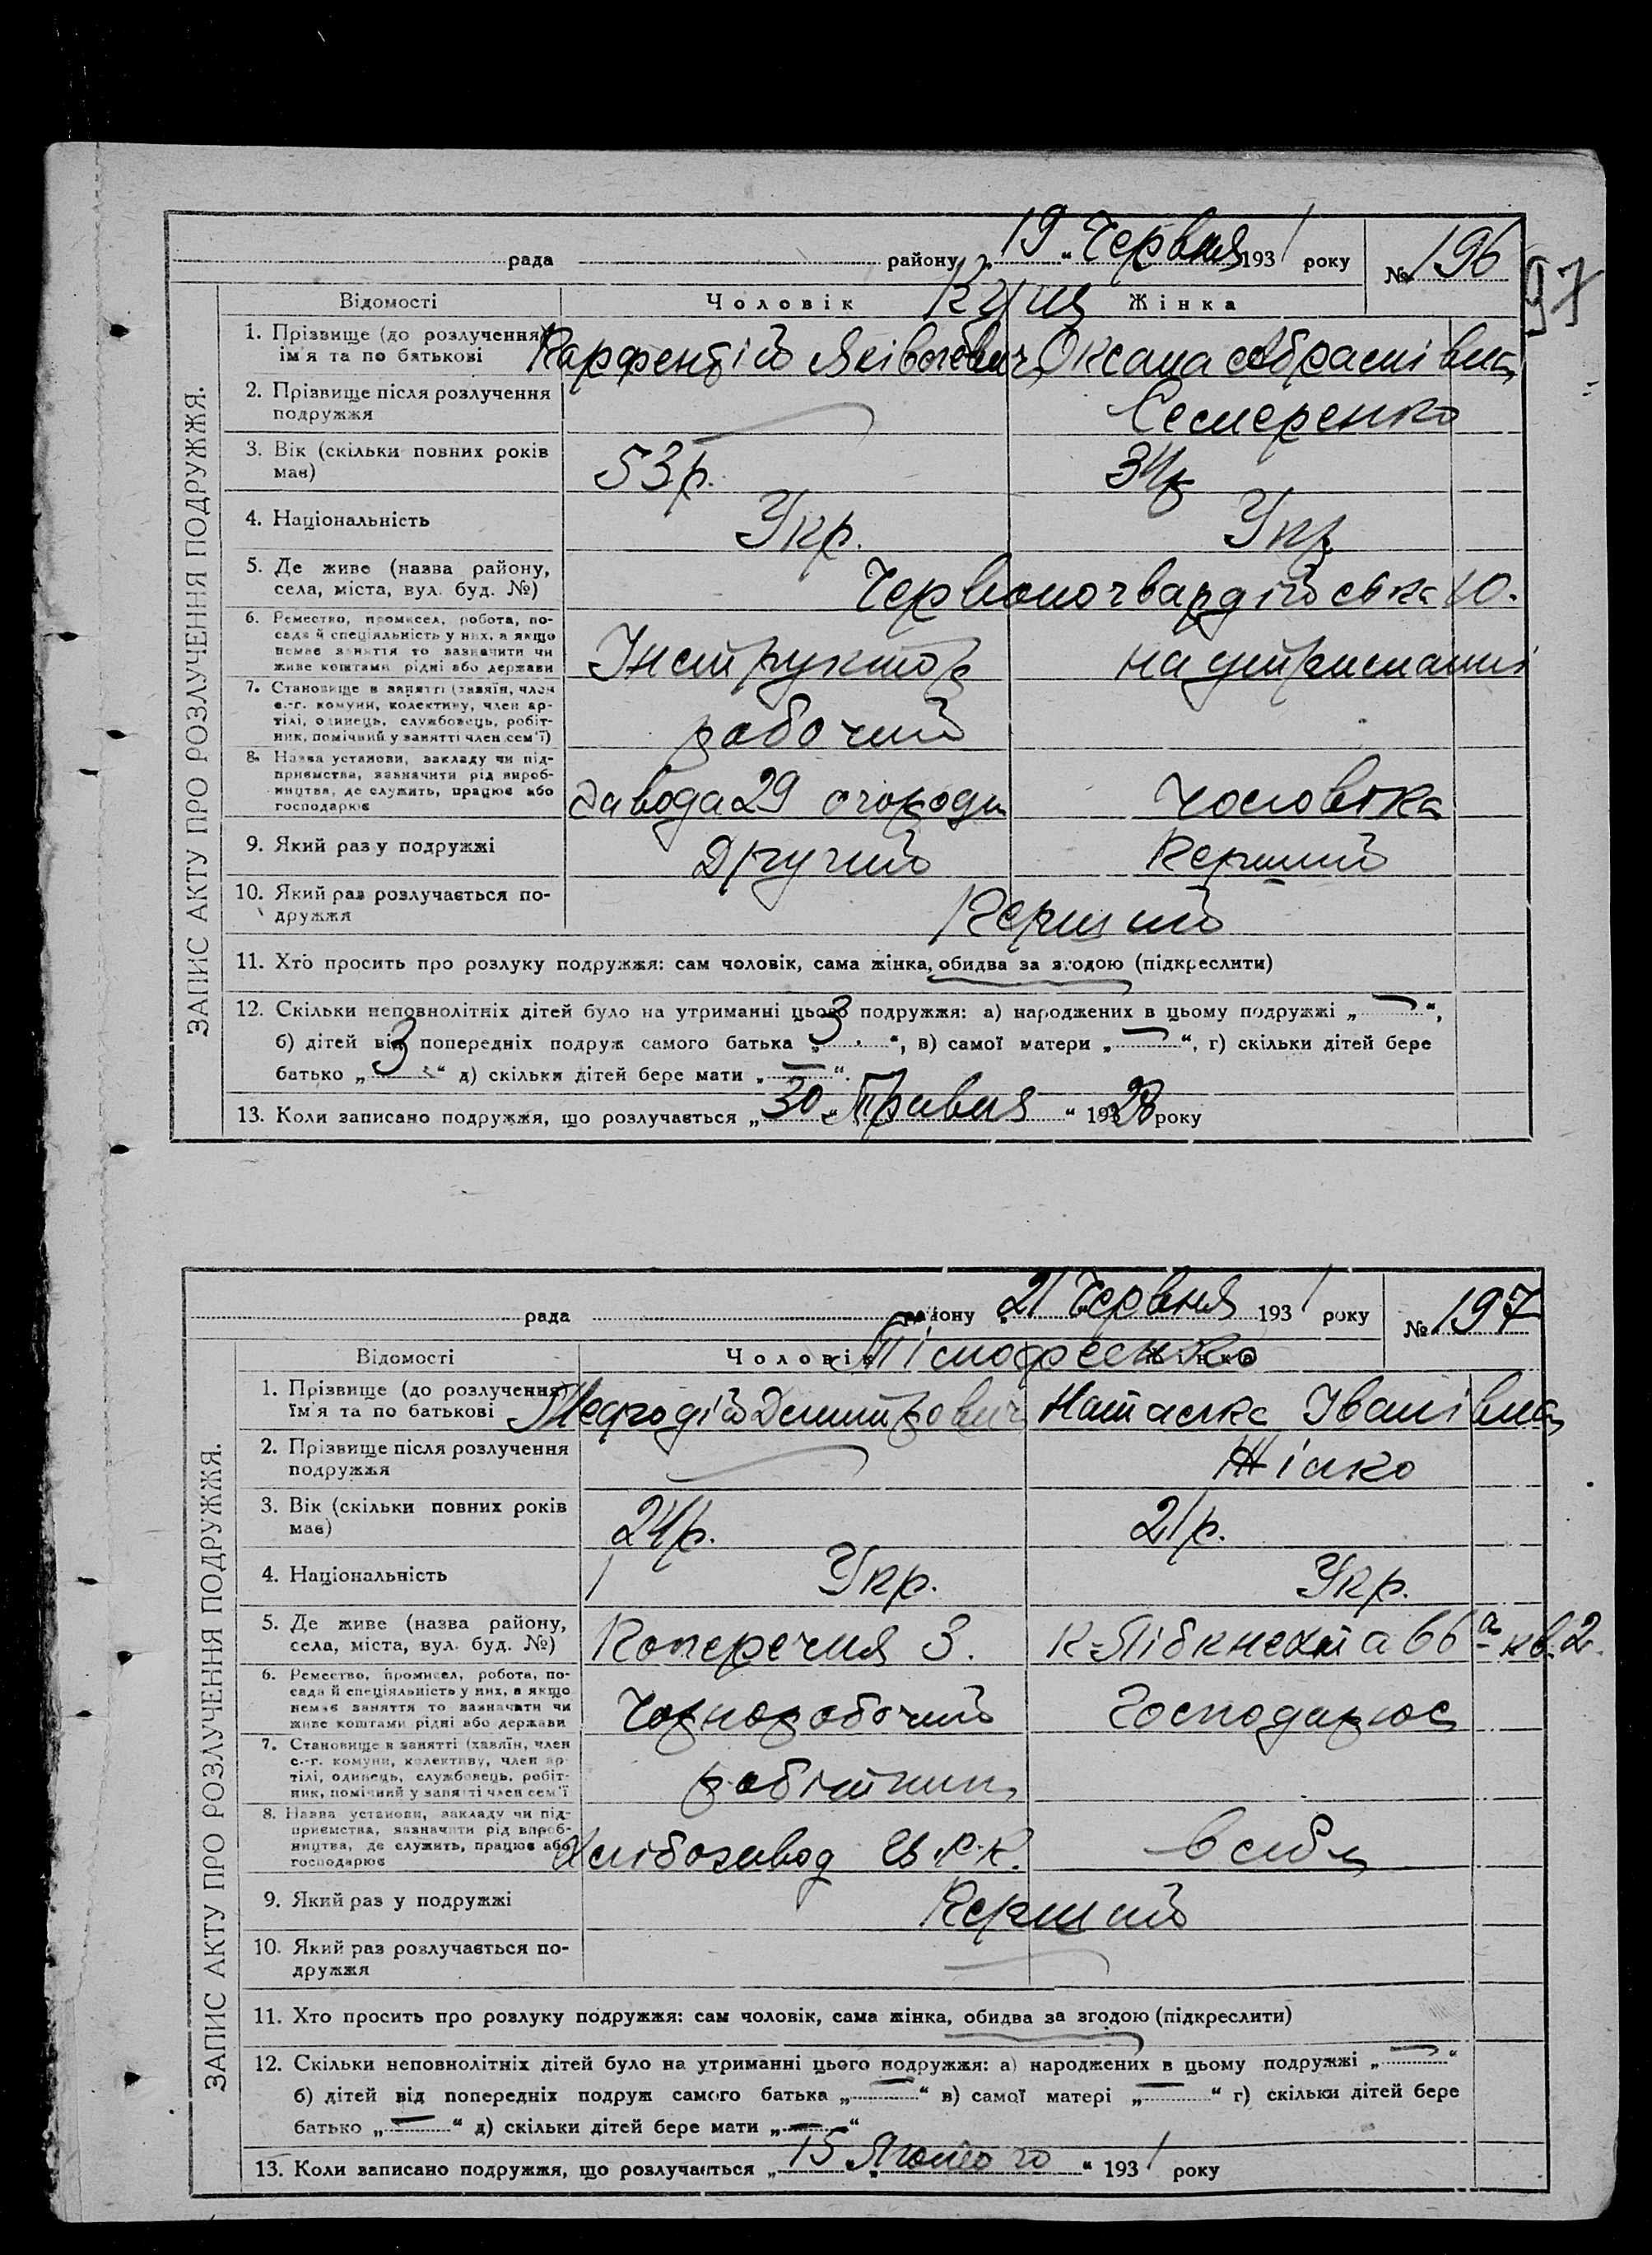 рада району „ 19 “ Червня 1931 року № 196
97
Відомості Чоловік Жінка
Куля
1. Прізвище (до розлучення) Парфентій Яківович Оксана Абрамівна
ім'я та по батькові
2. Прізвище після розлучення Семеренко
подружжя
3. Вік (скільки повних років 53 р. 34 р.
має)
4. Національність Укр. Укр.
5. Де живе (назва району, Червоногвардійська 10.
села, міста, вул. буд. №)
6. Ремество, промисел, робота, по-
сада й спеціяльність у них, а якщо
немає заняття то зазначити чи Інструктор на утриманні
живе коштами рідні або держави
7. Становище в занятті (хазяїн, член
с.-г. комуни, колективу, член ар-
тілі, одинець, службовець, робіт- рабочий
ник, помічний у занятті член сем'ї)
8. Назва установи, закладу чи під-
приємства, зазначити рід вироб-
ництва, де служить, працює або завода 29 чоловіка
господарює
9. Який раз у подружжі Другий Перший
10. Який раз розлучається по- Перший
дружжя
11. Хто просить про розлуку подружжя: сам чоловік, сама жінка, обидва за згодою (підкреслити)
12. Скільки неповнолітніх дітей було на утриманні цього подружжя: а) народжених в цьому подружжі „ — “,
б) дітей від попередніх подруж самого батька „ 3 “, в) самої матери „ — “, г) скільки дітей бере
батько „ 3 “ д) скільки дітей бере мати „ — “.
13. Коли записано подружжя, що розлучається „ 30 „ Травня “ 1928 року
ЗАПИС АКТУ ПРО РОЗЛУЧЕННЯ ПОДРУЖЖЯ.
рада району 21 Червня 1931 року № 197
Відомості Чоловік Жінка
Тімофеенко
1. Прізвище (до розлучення) Мефодій Дмитрович Наталка Іванівна
ім'я та по батькові
2. Прізвище після розлучення Жілко
подружжя
3. Вік (скільки повних років 24 р. 21 р.
має)
4. Національність Укр. Укр.
5. Де живе (назва району, Поперечня 3. К-Лібкнехта 66 а кв. 2.
села, міста, вул. буд. №)
6. Ремество, промисел, робота, по-
сада й спеціяльність у них, а якщо
немає заняття то зазначити чи Чорноробочий Господарює
живе коштами рідні або держави
7. Становище в занятті (хазяїн, член
с.-г. комуни, колективу, член ар-
тілі, одинець, службовець, робіт- робітник
ник, помічний у занятті член сем'ї
8. Назва установи, закладу чи під-
приємства, зазначити рід вироб-
ництва, де служить, працює або Хлібозавод в себе
господарює
9. Який раз у подружжі Перший
10. Який раз розлучається по-
дружжя
11. Хто просить про розлуку подружжя: сам чоловік, сама жінка, обидва за згодою (підкреслити)
12. Скільки неповнолітніх дітей було на утриманні цього подружжя: а) народжених в цьому подружжі „ — “
б) дітей від попередніх подруж самого батька „ — “ в) самої матері „ — “ г) скільки дітей бере
батько „ — “ д) скільки дітей бере мати „ — “
13. Коли записано подружжя, що розлучається „ 15 „ Лютого “ 1931 року
ЗАПИС АКТУ ПРО РОЗЛУЧЕННЯ ПОДРУЖЖЯ.